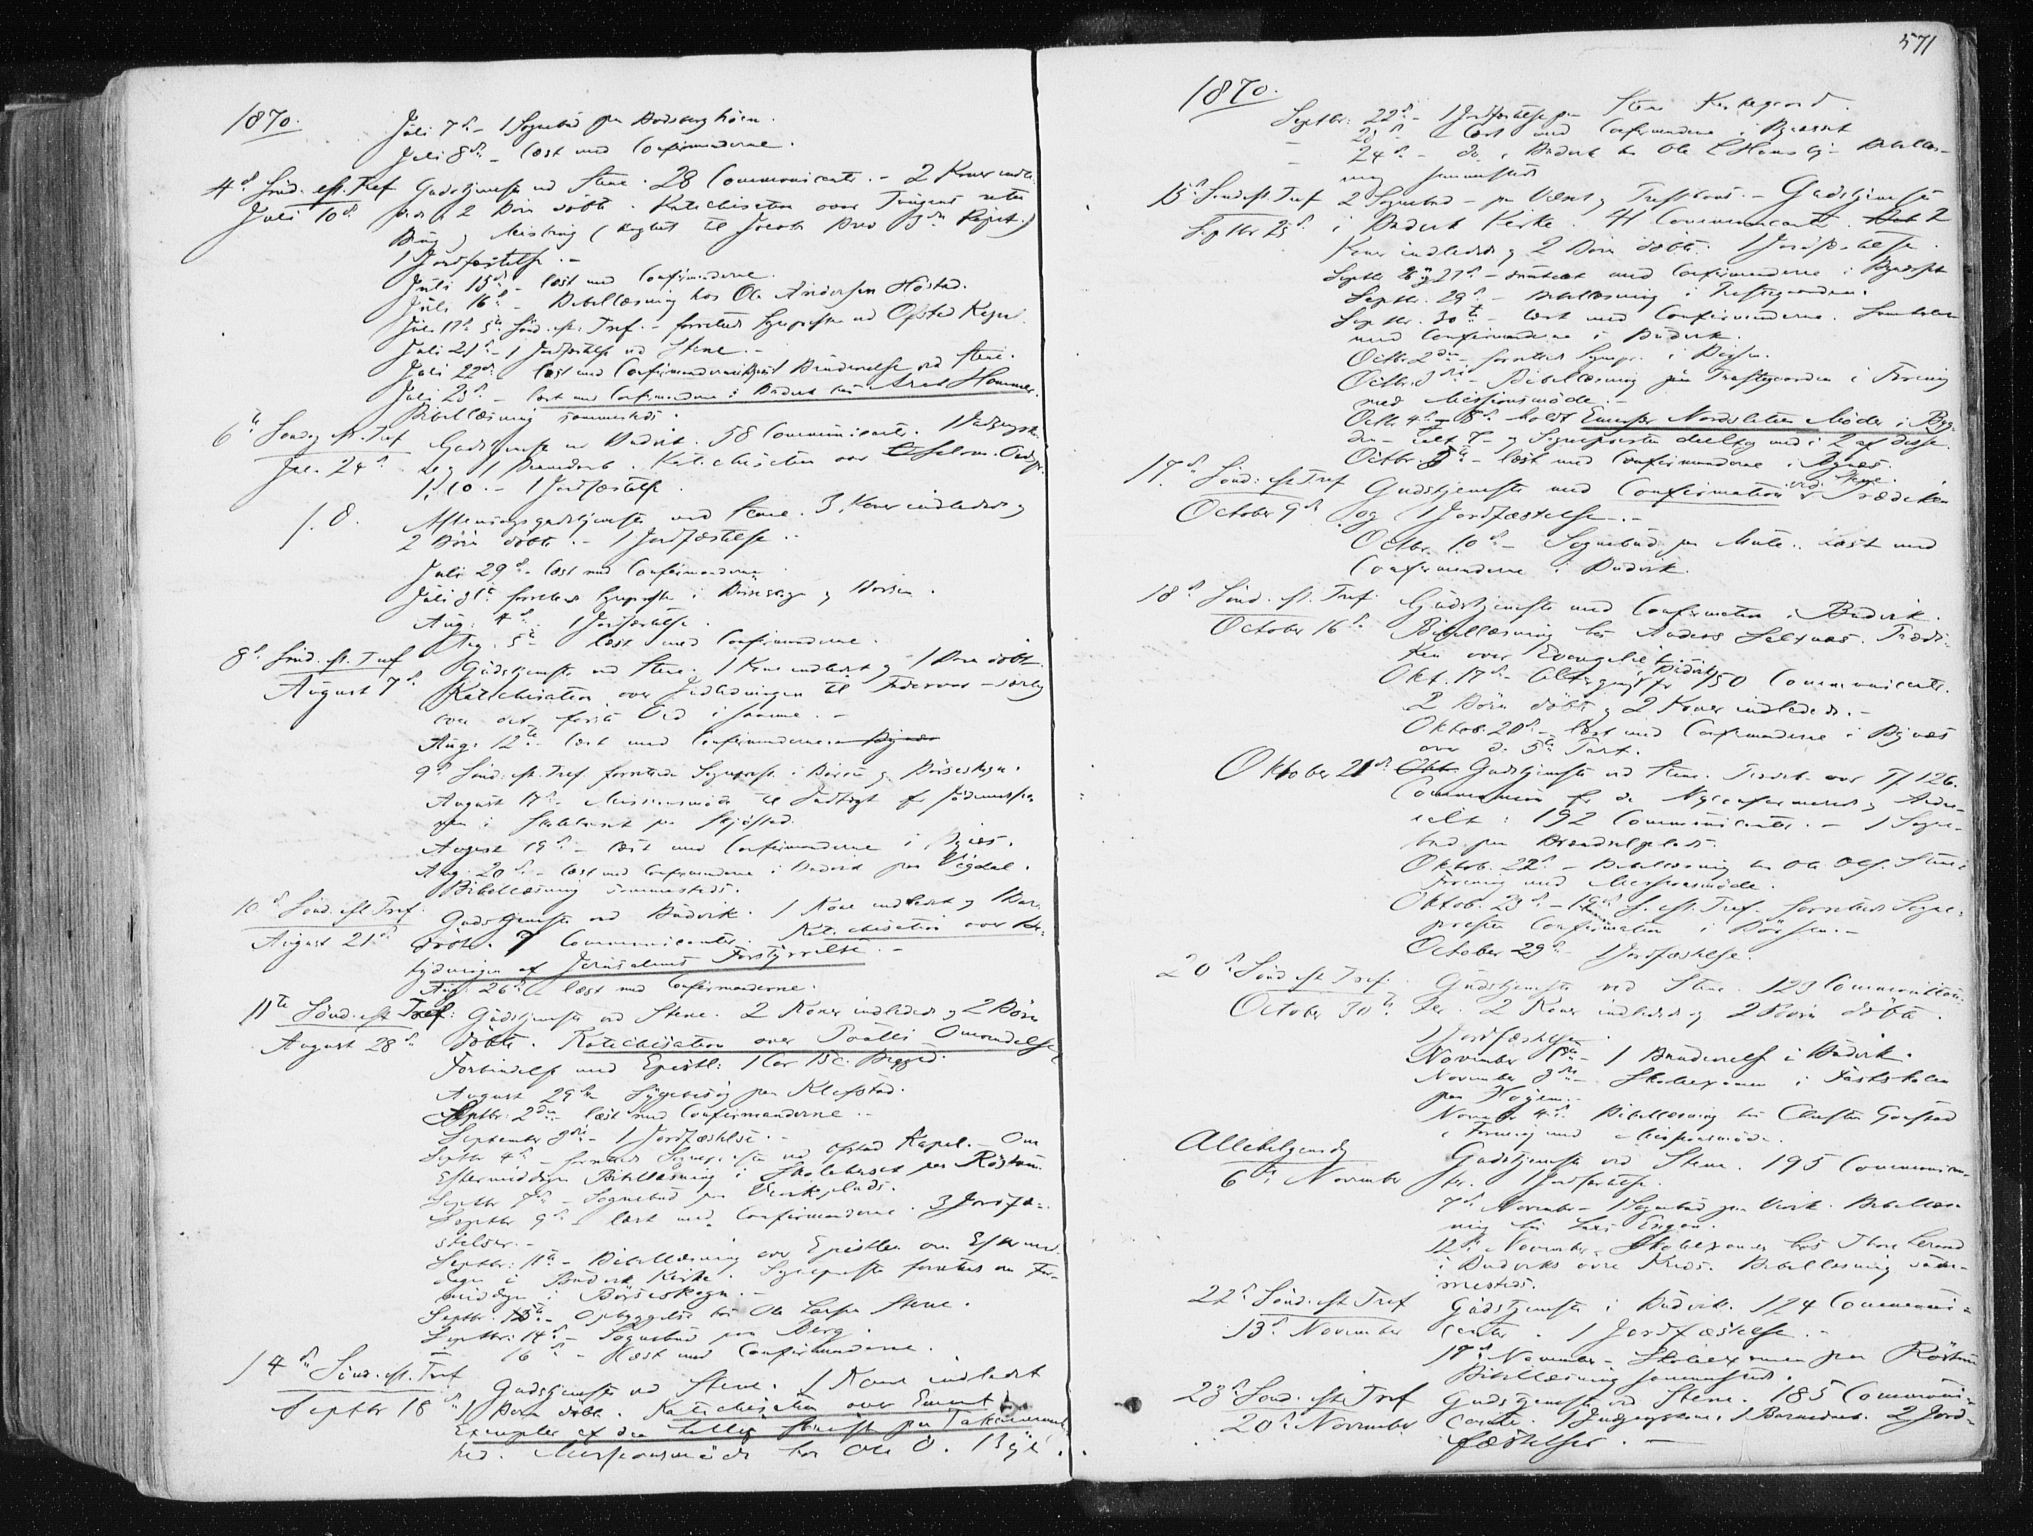 1870.
Juli 7de - 1 Sognebud paa
Juli 8de - læst med Confirmanderne.
4de Sønd. eft. Tref Gudstjeneste ved Stene. 28 Communicanter. - 2 Koner indle-
Juli 10de 2 Børn døbte. Katechisation over Tungens
1 Jordfæstelse. -
Juli 15de - læst med Confirmanderne.
Juli 16de - Bibellæsning hos Ole Andersen Høstad.
Juli 17de 5te Sønd. eft. Tref. - forrettede Sognepresten ved Opstad Kapel.
Juli 21de - 1 Jordfæstelse ved Stene. -
Juli 22de læst med Confirmanderne 1 Brudevielse ved Stene.
Juli 23de - læst med Confirmanderne i Budvik hos Hammer.
Bibellæsning sammesteds.
6te Søndag eft. Tref Gudstjeneste ved Budvik. 58 Communicanter.
Juli 24de og 1 Barnedaab. Katechisation over Salom. Ordspr.
1, 10. - 1 Jordfæstelse.
S. D. Aftensangsgudstjeneste ved Stene. 3 Koner indledede og
2 Børn døbte. - 1 Jordfæstelse.
Juli 29de læst med Confirmanderne
Juli 31te forrettede Sognepresten i Børseskogn og Børsen.
Aug. 4de 1 Jordfæstelse.
Aug. 5te læst med Confirmanderne.
8de Sønd. eft. Tref Gudstjeneste ved Stene. 1 Kone indledet og 1 Barn døbt.
August 7de Katechisation over Indledningen til Fadervor - særlig
over det første Ord i samme. -
Aug. 12te læst med Confirmanderne Bynæs
9de Sønd. eft. Tref. forrettede Sognepr. i Børsen og Børseskogn.
August 17de - Missionsmøde til Indtægt for Jødemissio-
nen i Skolehuset paa Skjøstad.
August 19de - læst med Confirmanderne i Bynæs.
Aug. 20de - læst med Confirmanderne i Budvik paa Vigdal.
Bibellæsning sammesteds.
10de Sønd. eft. Tref. Gudstjeneste ved Budvik. 1 Kone indledet og 1 Barn
August 21de døbt. 7 Communicanter. Katechisation over Be-
tydningen af Jerusalems Forstyrrelse. -
Aug. 26de læst med Confirmanderne.
11te Sønd. eft Tref: Gudstjeneste ved Stene. 2 Koner indledede og 2 Børn
August 28de døbte. Katechisation over Paulli Omvendelse
Forbindelse med Epistl: 1 Cor 15 C.
August 29de Sygebesøg paa Klefstad.
Septbr. 2den læst med Confirmanderne. -
September 3die - 1 Jordfæstelse. -
Septbr 4de - forrettede Sognepresten ved Opstad Kapel. - Om
Eftermiddagen Bibellæsning i Skolehuset paa Røstum.
Septbr 7de - Sognebud paa Viksplads.
Septbr 9de læst med Confirmanderne. 3 Jordfæ-
stelser. -
Septbr: 11te - Bibellæsning over Epistlen om Eftermid-
dagen i Budvik Kirke. Sognepresten forrettede om For-
middagen i Børseskogn. -
Septbr. 13de - Opbyggelse hos Ole Larsen Stene.
Septbr: 14de - Sognebud paa Berg.
16de - læst med Confirmanderne.
14de Sønd. eft. Tref Gudstjeneste ved Stene. 1 Kone indledet
Septbr 18de 1 Barn døbt. Katechisation over Evment
Exempler af den hellige Skrift paa Taknemmelig-
hed. Missionsmøde hos Ole O. Bye.
571
1870.
Septbr: 22de - 1 Jordfæstelse paa Stene Kirkegaard.
- 23de læst med Confirmanderne i Bynæsset
- 24de - do. i Budvik hos Ole - Bibellæs-
ning sammesteds
15de Sønd eft Tref 2 Sognebud - paa - Gudstjeneste
Septbr 25de i Budvik Kirke. 41 Communicanter. 2
Koner indledede og 2 Børn døbte. 1 Jordfæstelse.
Septbr 26 og 27de - med Confirmanderne i Bynæsset
Septbr. 29de - Bibellæsning i Prestegaarden.
Septbr. 30te - læst med Confirmanderne.
med Confirmanderne i Budvik.
Octbr. 2den forrettede Sognepr. i Børsen.
Octbr. 3die - Bibellæsning paa Prestegaarden i Forening
med Missionsmøde. -
Octb. 4de - 8de holdt Møder i Byg-
den - ialt 7 - og Sognepresten deeltog med i 2 af disse.
Octbr. 7de - læst med Confirmanderne i Bynæs.
17de Sønd: eft Tref Gudstjeneste med Confirmation ved Stene. Prædiken
October 9de og 1 Jordfæstelse. -
Octbr. 10de - Sognebud paa Mule. læst med
Confirmanderne i Budvik.
18de Sønd. eft. Tref. Gudstjeneste med Confirmation i Budvik.
October 16de Bibellæsning hos Anders Selnæs. Prædi-
ken over Evangeliet
Okt. 17de - Altergang for 150 Communicanter.
2 Børn døbte og 2 Koner indledede. -
Oktob. 20de - læst med Confirmanderne i Bynæs
over d. 5te Part.
Oktober 21de Gudstjeneste ved Stene. Prædik. over Ps 126.
Communion for de Nyconfirmerede og Andre
ialt: 192 Communicanter. - 1 Sogne-
bud paa
Oktob. 22de - Bibellæsning hos Ole Ols. Stene i
Forening med Missionsmøde.
Oktob. 23de - 19de S. eft. Tref. forrettede Sogne-
presten Confirmation i Børsen. -
October 29de - 1 Jordfæstelse.
20de Sønd eft Tref. Gudstjeneste ved Stene. 123 Communican-
October 30te ter. 2 Koner indledede og 2 Børn døbte.
1 Jordfæstelse
November 1ste - 1 Brudevielse i Budvik.
November 3die - Skolexamen i Fastskolen
paa Høgen.
November 4de Bibellæsning hos
i Forening med Missionsmøde.
Allehelgensdag Gudstjeneste ved Stene. 195 Communican-
6te November ter. 1 Jordfæstelse.
7de November - 1 Sognebud paa Berg. Bibellæs-
ning hos Lars Engen.
12te November Skolexamen hos
i Budviks øvre Kreds. Bibellæsning sam-
mesteds.
22de Sønd. eft Tref Gudstjeneste i Budvik. 124 Communi-
13de November canter. 1 Jordfæstelse. -
17de November - Skolexamen paa Røstum
Bibellæsning sammesteds.
23de Sønd. eft Tref Gudstjeneste ved Stene. 185 Communi-
20de November canter. 1 Barnedaab. 2 Jord-
fæstelser. -